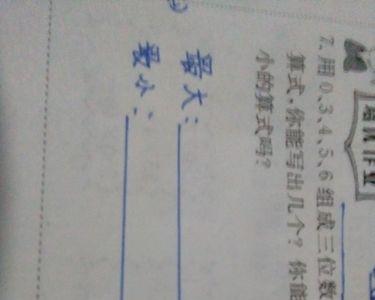 培优作业
7. 用 0、3、4、5、6 组成三位数
算式,你能写出几个?你能
小的算式吗?
最大:
最小: